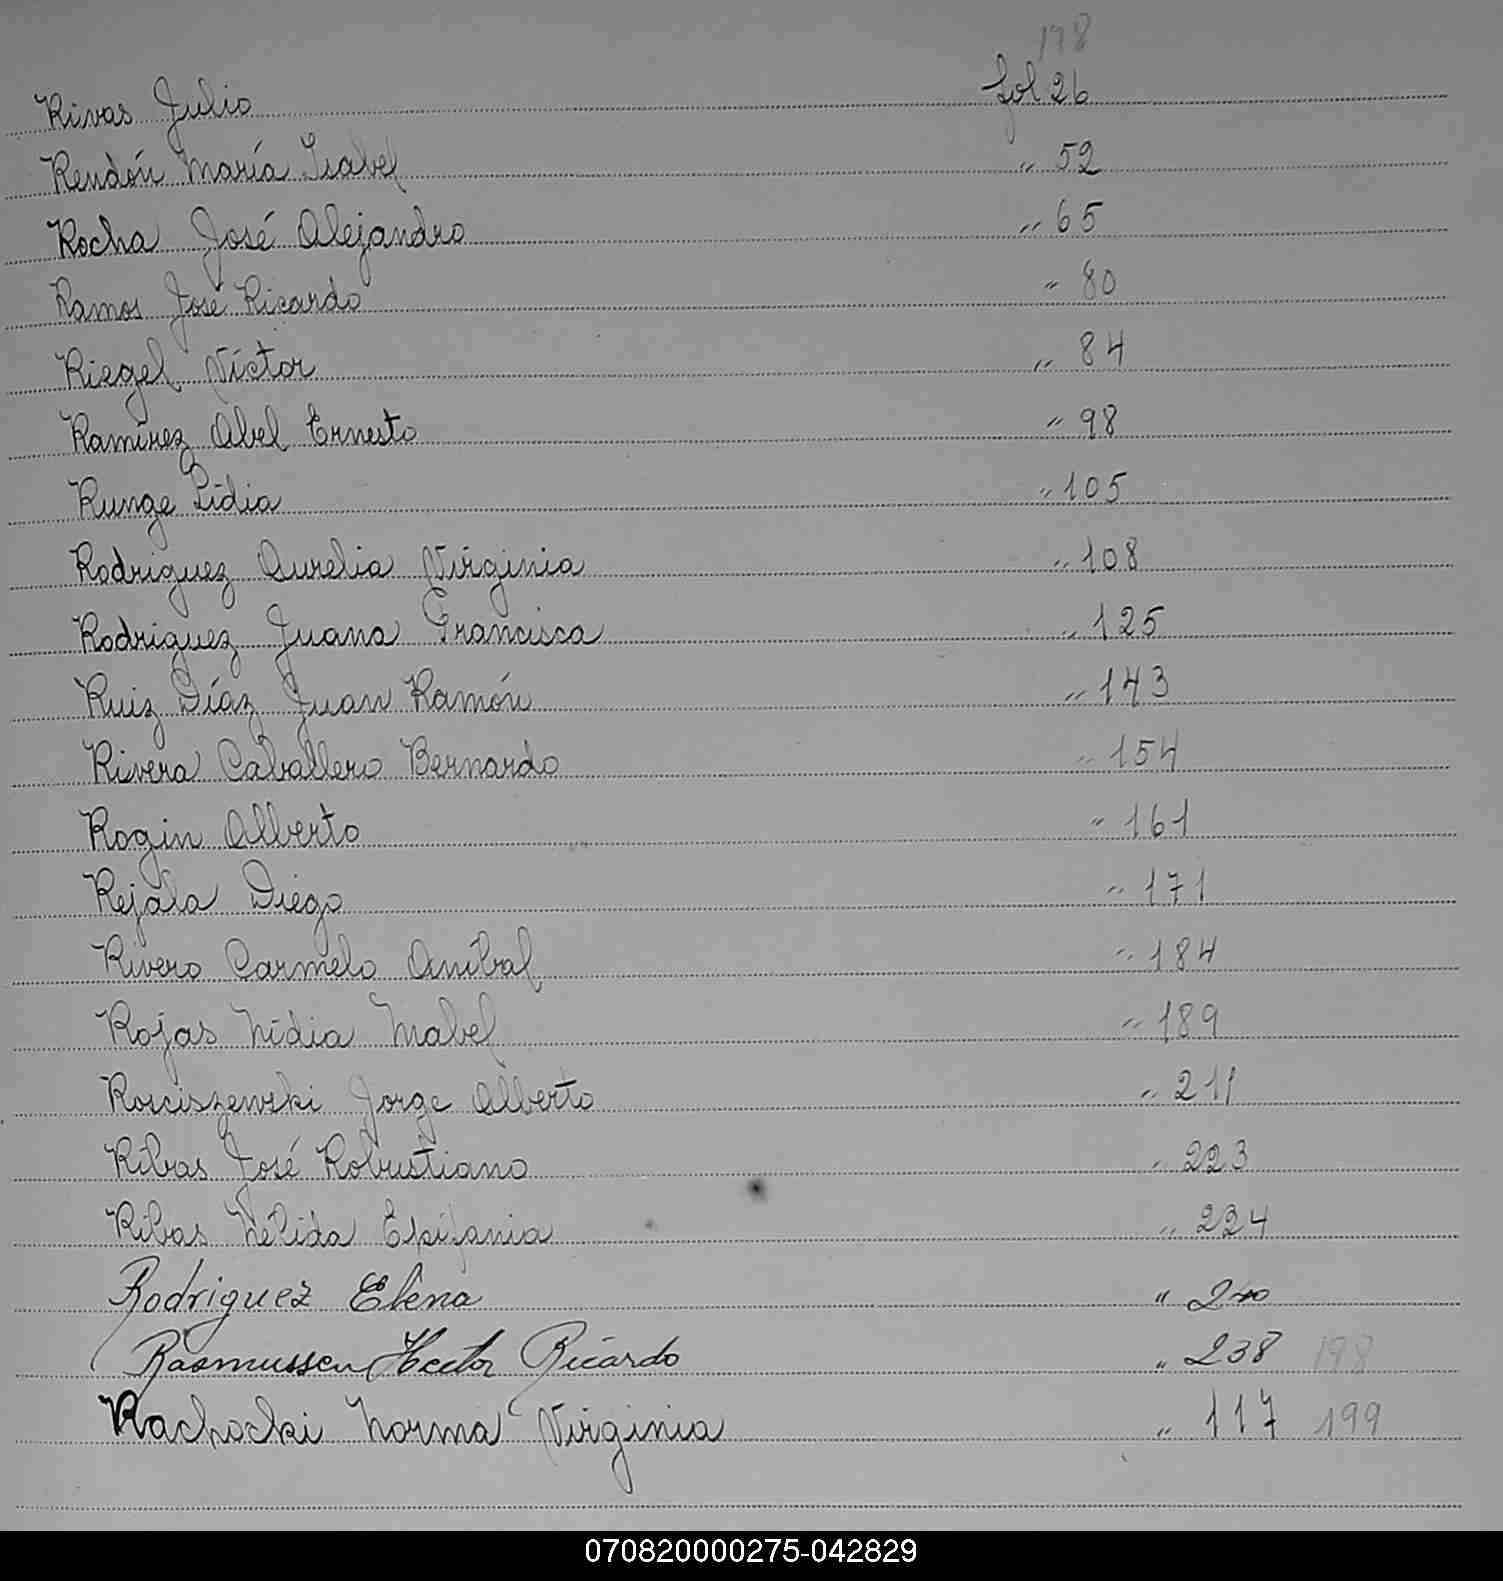 178
Rivas Julio fol 26
Rendón María Isabel " 52
Rocha José Alejandro " 65
Ramos José Ricardo " 80
Riegel Víctor " 84
Ramírez Abel Ernesto " 98
Runge Lidia " 105
Rodriguez Aurelia Virginia " 108
Rodriguez Juana Francisca " 125
Ruiz Díaz Juan Ramón " 143
Rivera Caballero Bernardo " 154
Rogin Alberto " 161
Rejala Diego " 171
Rivero Carmelo Aníbal " 184
Rojas Nidia Mabel " 189
Rosciszewski Jorge Alberto " 211
Ribas José Robustiano " 223
Ribas Nélida Epifania " 224
Rodriguez Elena " 240
Rasmussen Hector Ricardo " 238 198
Rachocki Norma Virginia " 117 199
070820000275-042829